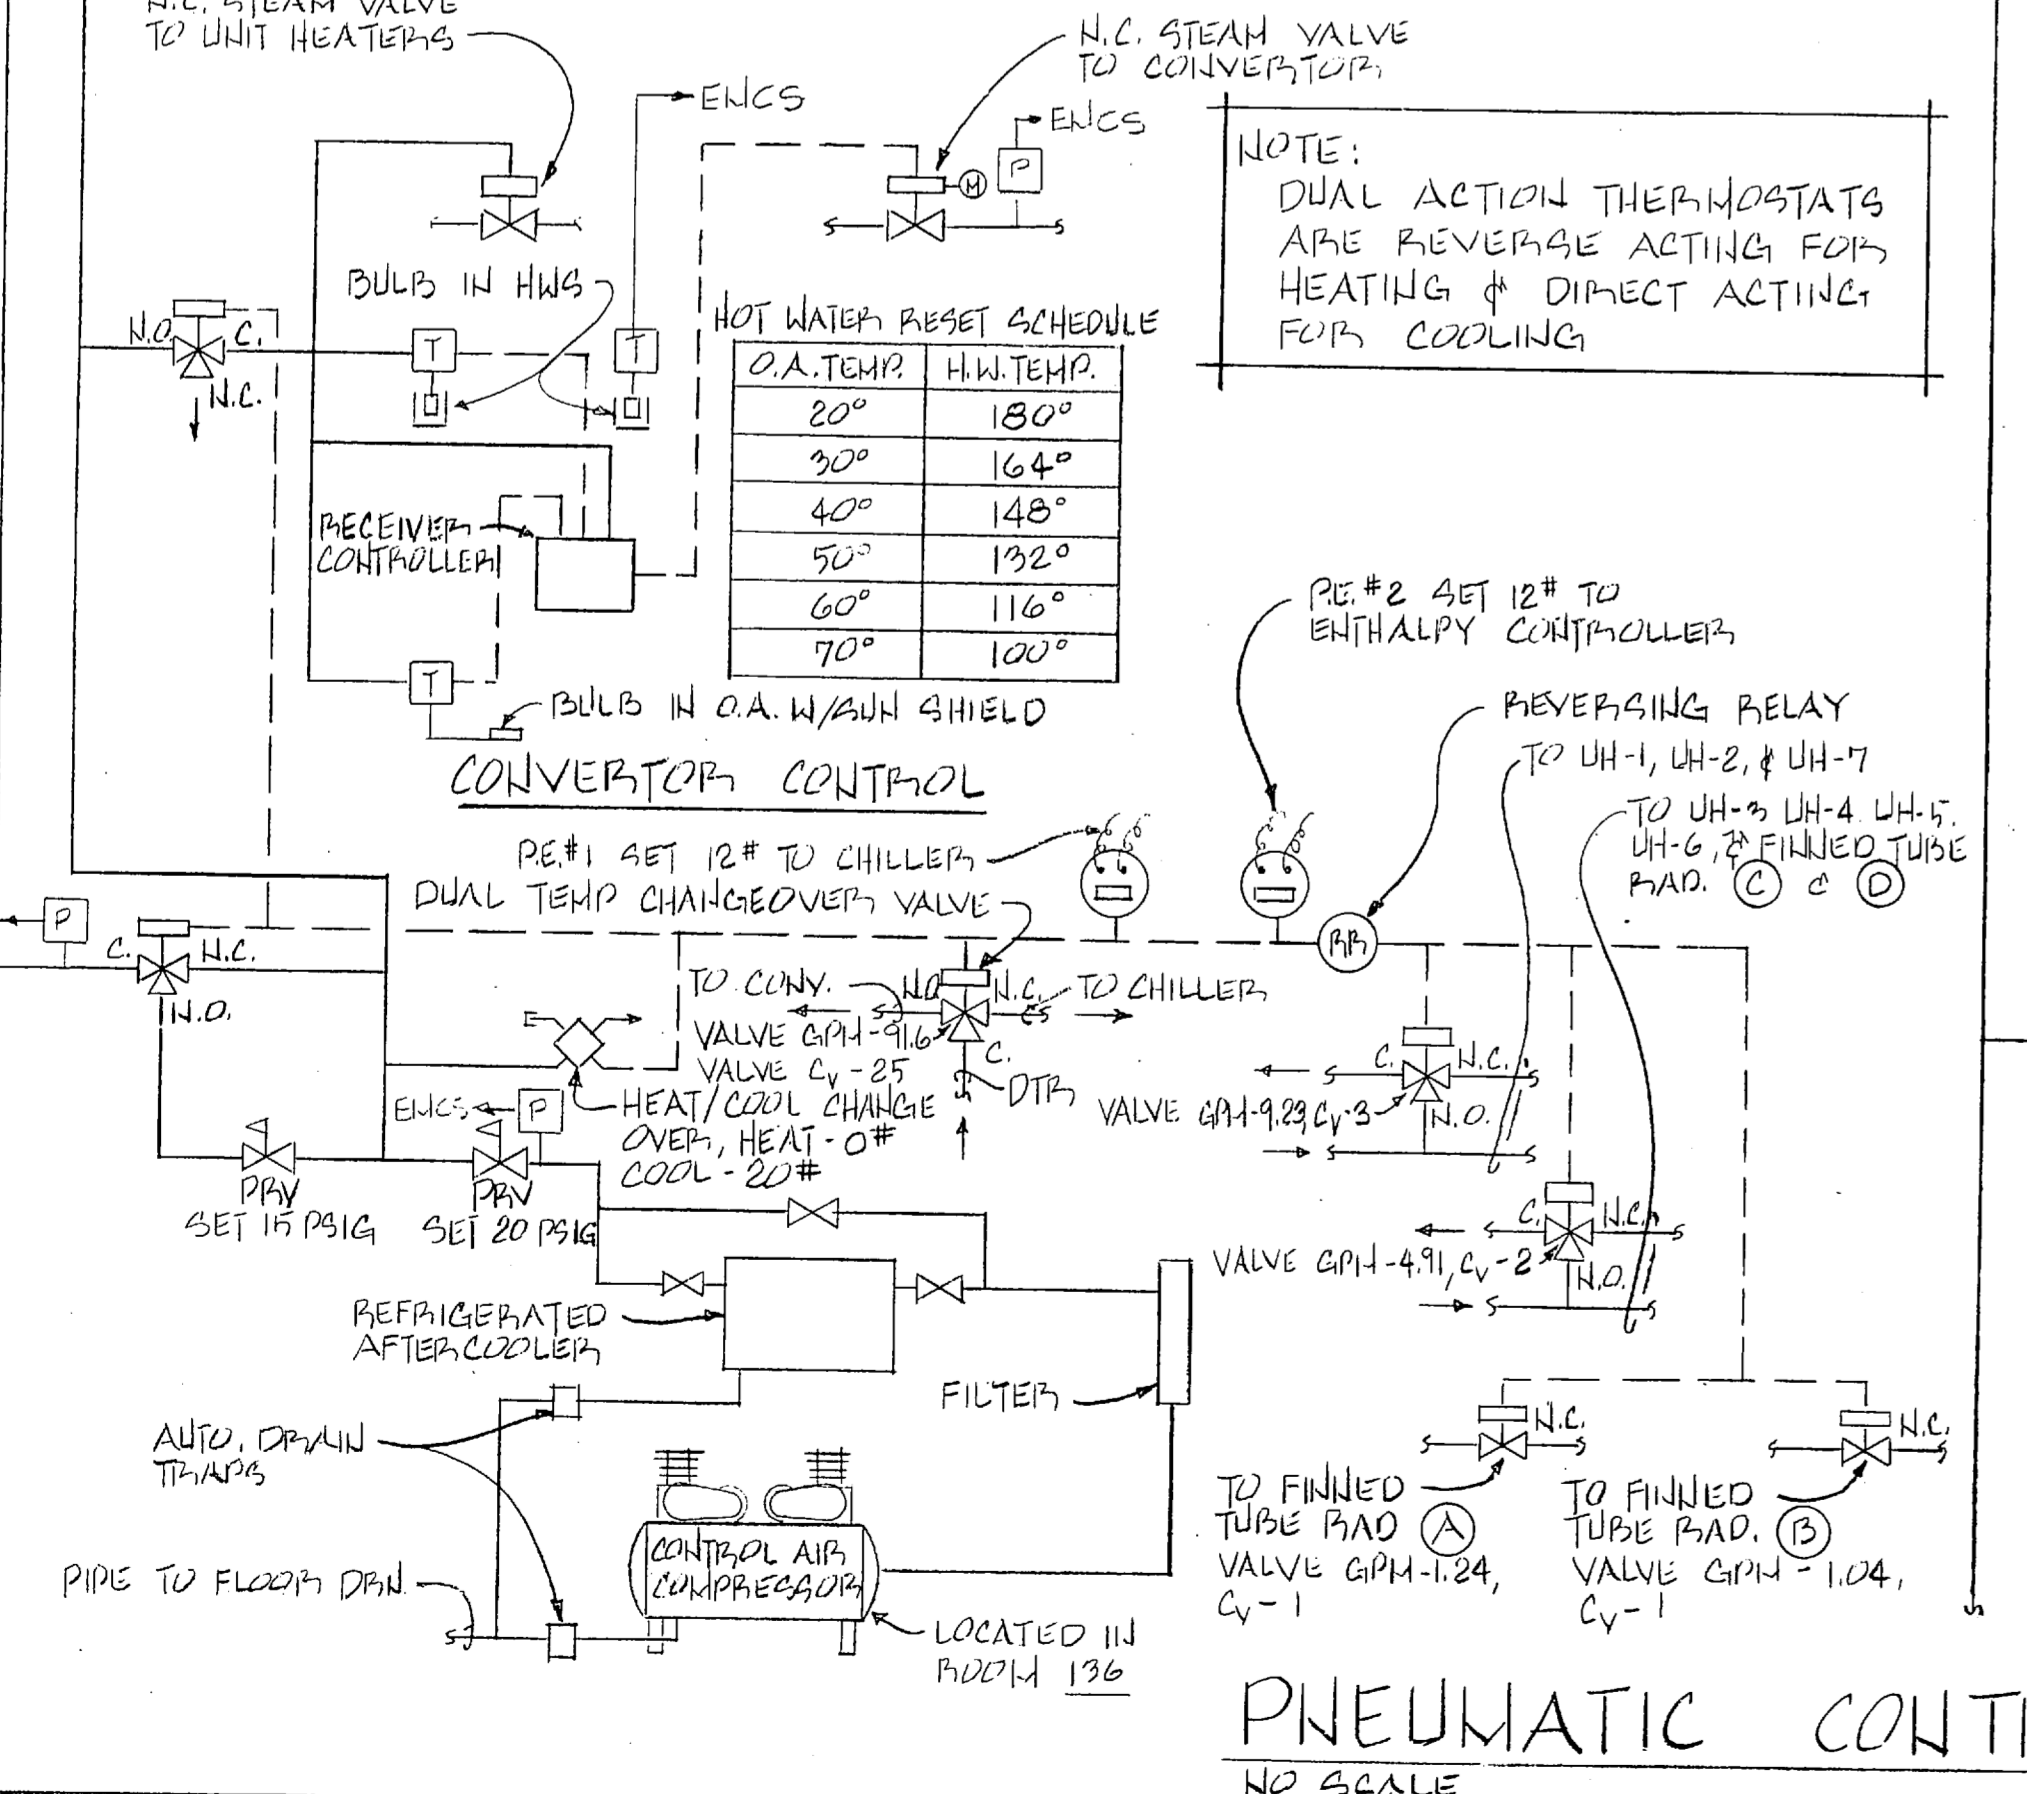 N.C. STEAM VALVE
TO UNIT HEATERS
N.C. STEAM VALVE
TO CONVERTOR
EMCS
EMCS
P
M
NOTE:
DUAL ACTION THERMOSTATS
ARE REVERSE ACTING FOR
HEATING & DIRECT ACTIING
FOR COOLING
BULB IN HWS
N.O.
C.
N.C.
T
T
HOT WATER RESET SCHEDULE
O.A. TEMP. H.W. TEMP.
20° 180°
30° 164°
40° 148°
50° 132°
60° 116°
70° 100°
RECEIVER
CONTROLLER
T
BULB IN O.A. W/SUN SHIELD
CONVERTOR CONTROL
P.E. #2 SET 12# TO
ENTHALPY CONTROLLER
REVERSING RELAY
TO UH-1, UH-2, & UH-7
TO UH-3 UH-4 UH-5.
UH-6, & FINNED TUBE
RAD. C & D
P.E.#1 SET 12# TO CHILLER
DUAL TEMP CHANGEOVER VALVE
P
C.
N.C.
N.O.
RR
TO CONV.
N.O.
N.C.
TO CHILLER
VALVE GPM-91.6
VALVE Cv-25
C.
DTR
EMCS
P
HEAT/COOL CHANGE
OVER, HEAT-0#
COOL-20#
C.
N.C.
VALVE GPM-9.23, Cv-3
N.O.
PRV
SET 15 PSIG
PRV
SET 20 PSIG
C.
N.C.
VALVE GPM-4.91, Cv-2
N.O.
REFRIGERATED
AFTERCOOLER
FILTER
AUTO. DRAIN
TRAPS
N.C.
N.C.
TO FINNED
TUBE RAD A
VALVE GPM-1.24,
Cv-1
TO FINNED
TUBE RAD. B
VALVE GPM-1.04,
Cv-1
CONTROL AIR
COMPRESSOR
PIPE TO FLOOR DRN.
LOCATED IN
ROOM 136
PNEUMATIC CONT
NO SCALE